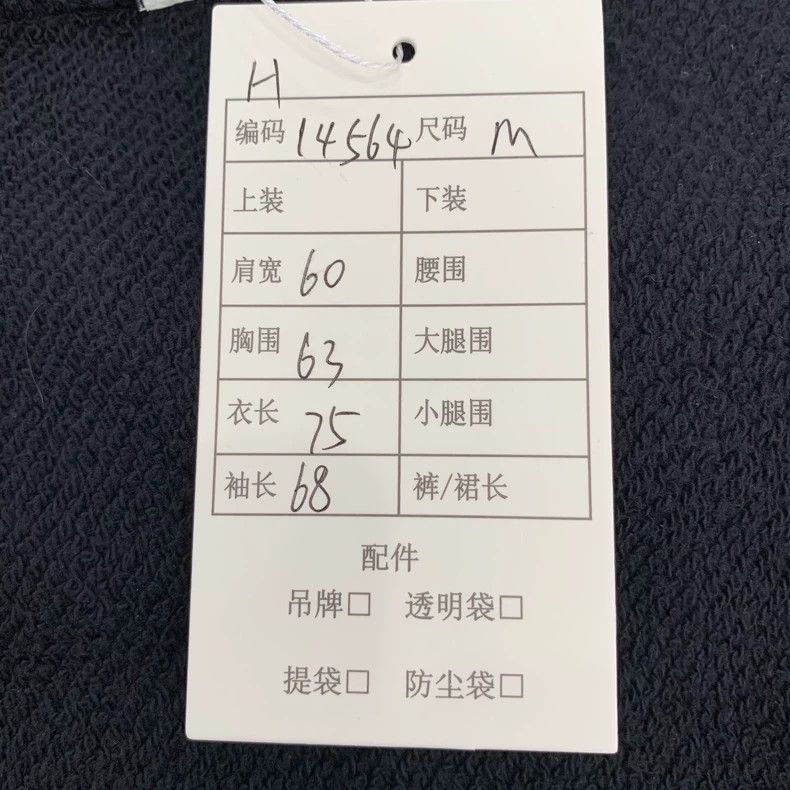 H
编码 14564 尺码 M
上装 下装
肩宽 60 腰围
胸围 63 大腿围
衣长 75 小腿围
袖长 68 裤/裙长
配件
吊牌□ 透明袋□
提袋□ 防尘袋□